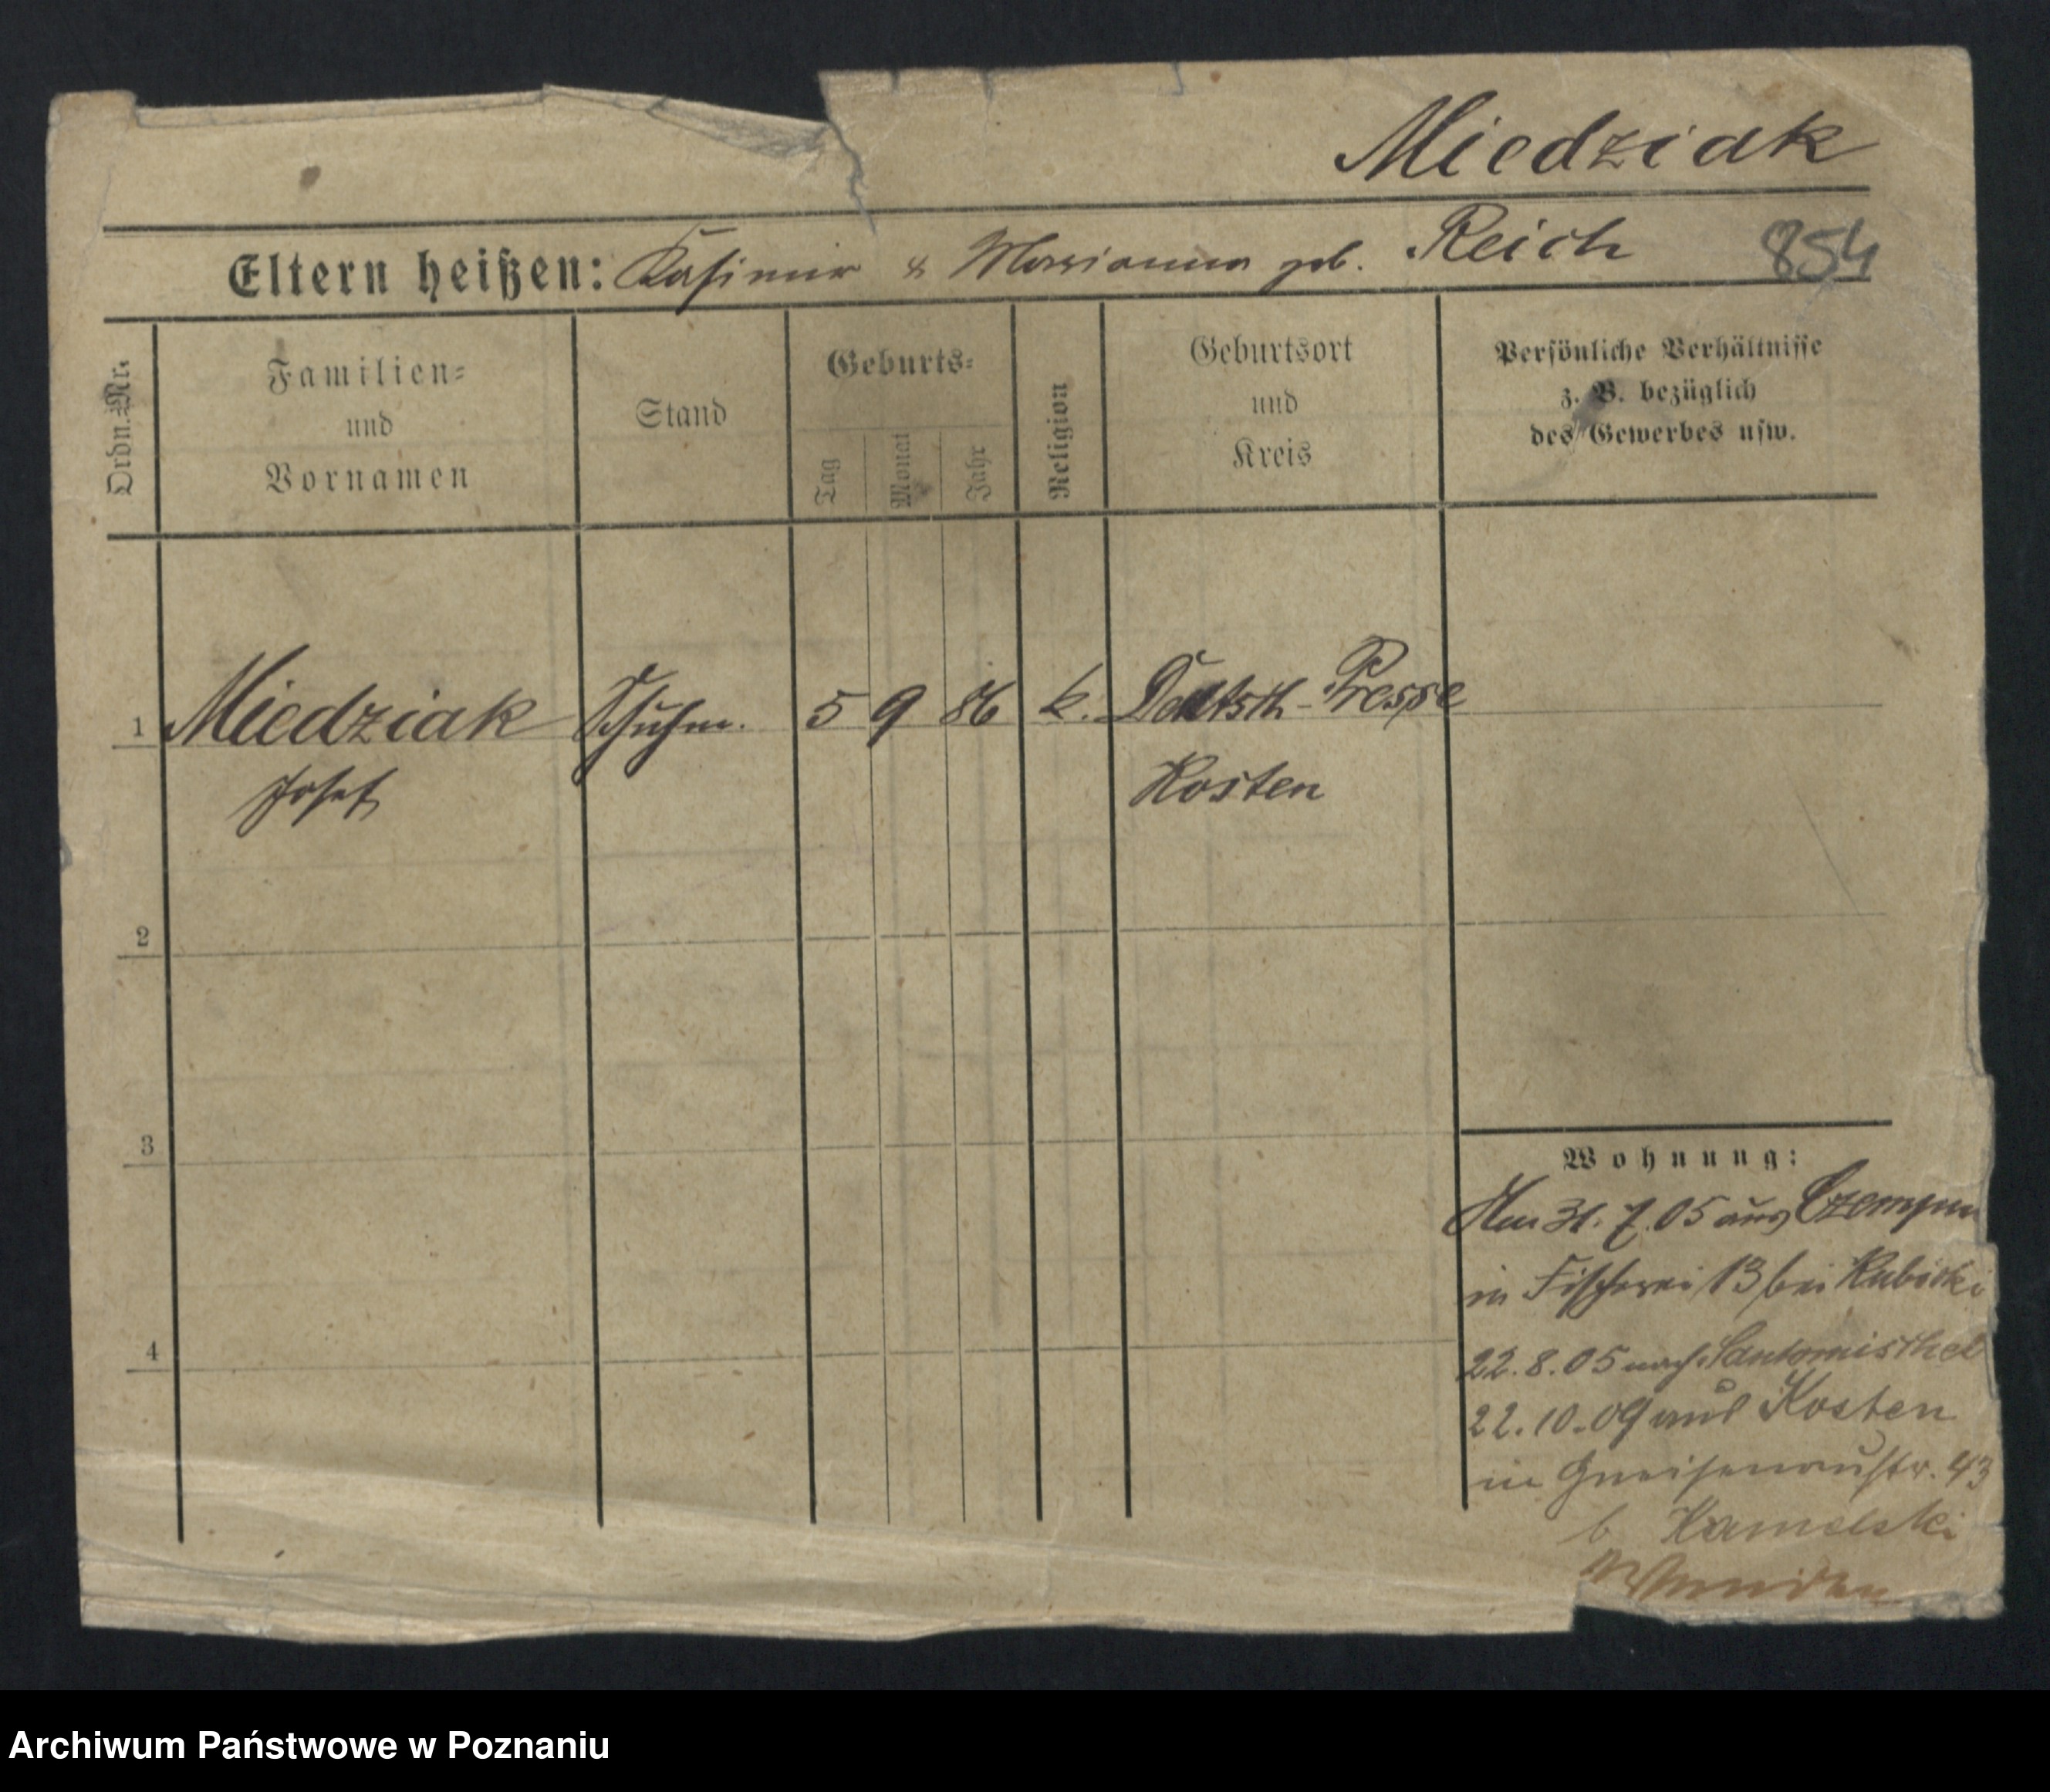 Miedziak
Eltern heißen: Kasimir & Marianna geb. Reich 854
Ordn.-Nr.
Familien=
und
Vornamen
Stand
Geburts=
Tag
Monat
Jahr
Religion
Geburtsort
und
Kreis
Persönliche Verhältnisse
z. B. bezüglich
des Gewerbes usw.
1 Miedziak Schuhm. 5 9 86 k. Deutsch-Presse
Josef Kosten
2
3
4
Wohnung:
Am 31. 7. 05 aus Czempin
in Fischerei 13 bei Kubicki
22. 8. 05 nach Santomischel
22. 10. 09 aus Kosten
in Gneisenaustr. 43
b
Archiwum Państwowe w Poznaniu